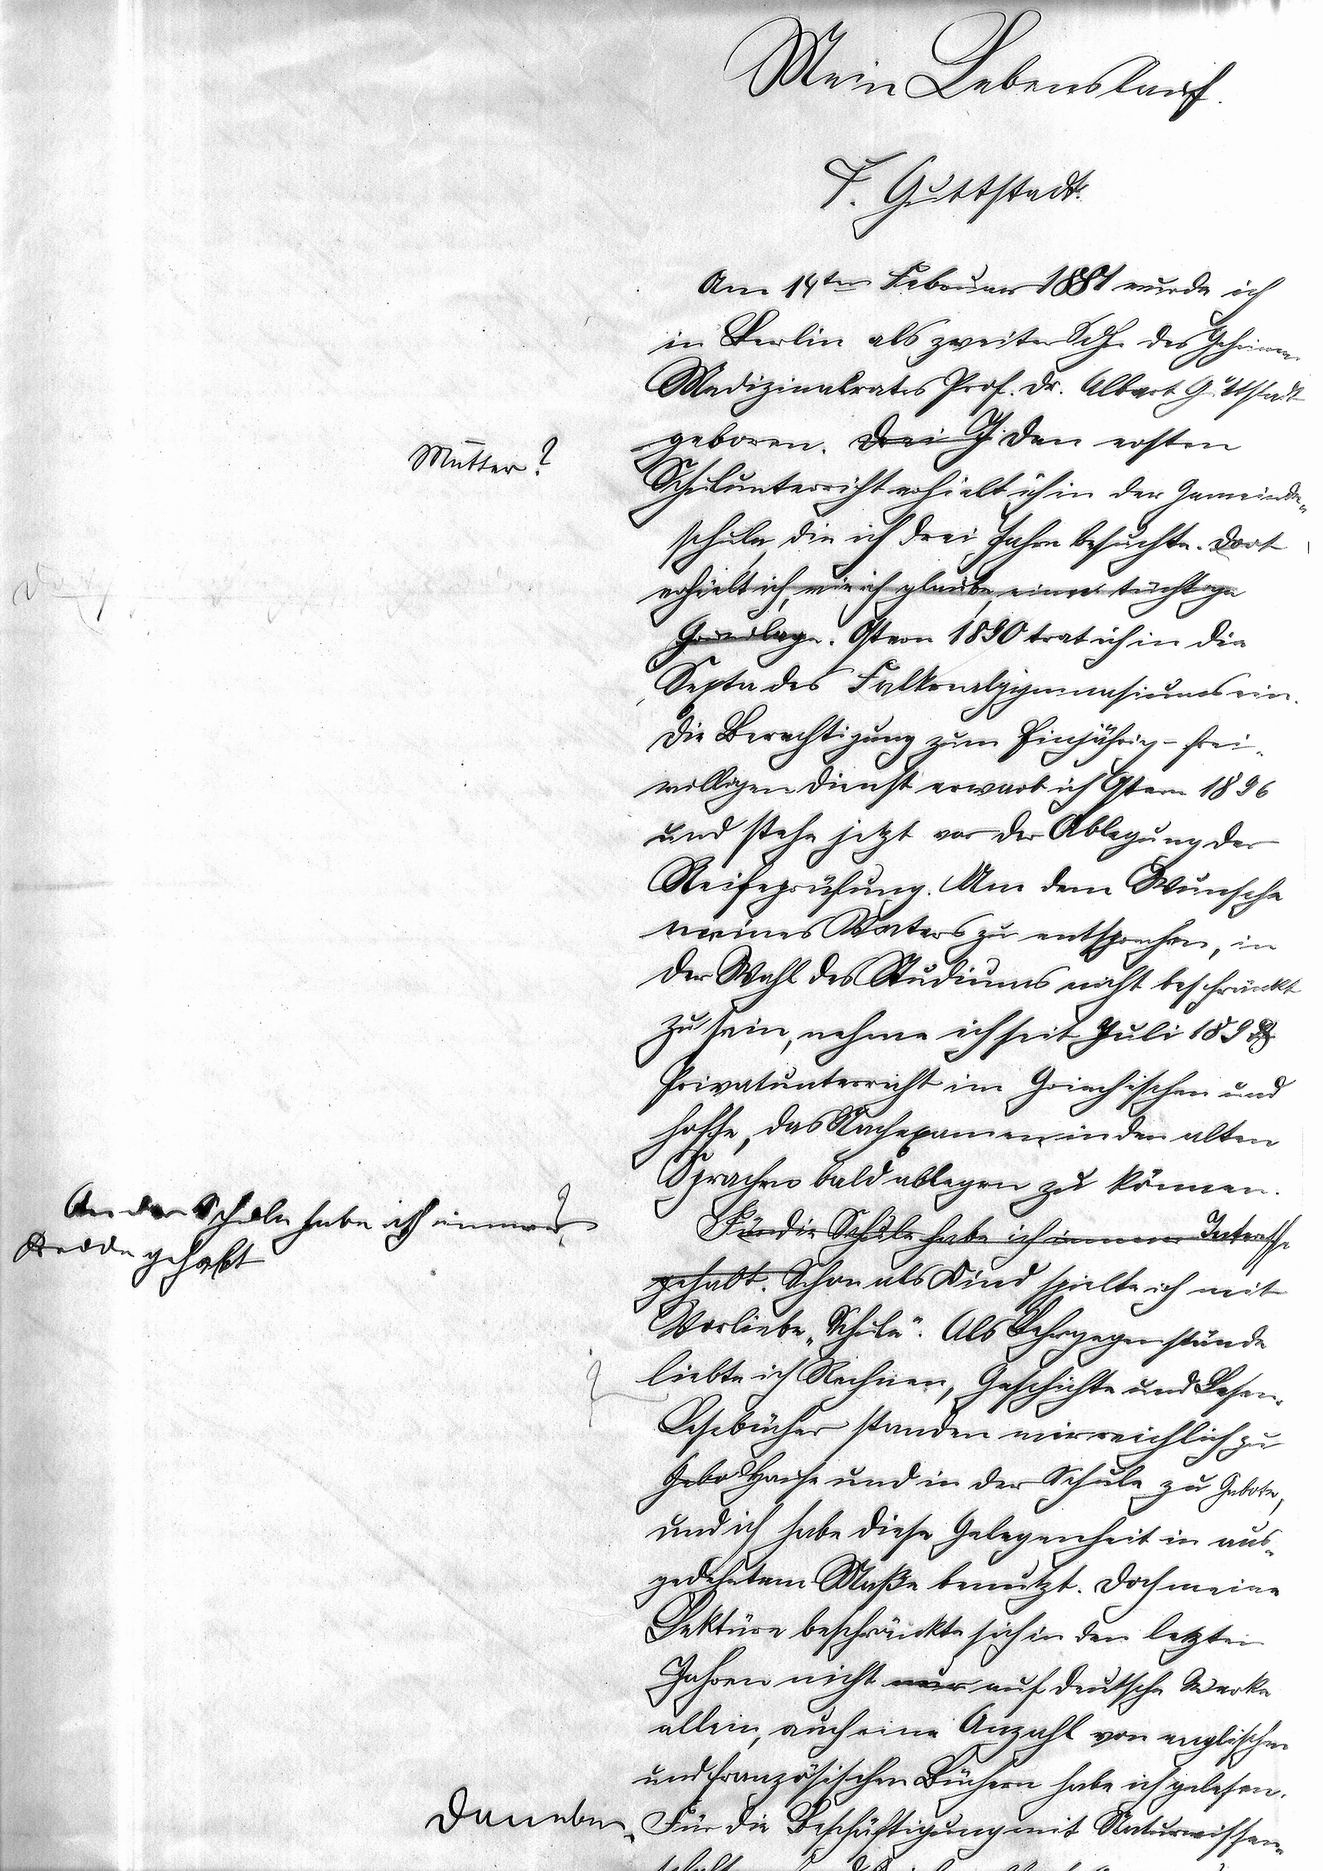 Mein Lebenslauf.
F. Guttstadt.
Am 14ten Februar 1881 wurde ich
in Berlin als zweiter Sohn des Geheimen
Medizinalrates Prof. Dr. Albert Guttstadt
geboren. Drei J. Den ersten
Mutter?
Schulunterricht erhielt ich in der Gemeinde-
schule, die ich drei Jahre besuchte. Dort
erhielt ich, wie ich glaube, eine tüchtige
Grundlage. Ostern 1890 trat ich in die
Sexta des Falkrealgymnasiums ein.
Die Berechtigung zum Einjährig-frei-
willigen Dienst erwarb ich Ostern 1896
und stehe jetzt vor der Ablegung der
Reifeprüfung. Um dem Wunsche
meines Vaters zu entsprechen, in
der Wahl des Studiums nicht beschränkt
zu sein, nehme ich seit Juli 1898
Privatunterricht im Griechischen und
hoffe, das Nachexamen in den alten
Sprachen bald ablegen zu können.
An der Schule habe ich immer ?
Freude gehabt
Für die Schule habe ich immer Interesse
gehabt. Schon als Kind spielte ich mit
Vorliebe „Schule“. Als Lehrgegenstände
liebte ich Rechnen, Geschichte und Lesen.
Lesebücher standen mir reichlich zu
Gebo Hause und in der Schule zu Gebote,
und ich habe diese Gelegenheit in aus-
gedehntem Maße benutzt. Doch meine
Lektüre beschränkte sich in den letzten
Jahren nicht nur auf deutsche Werke
allein, auch eine Anzahl von englischen
und französischen Büchern habe ich gelesen.
Daneben
Für die Beschäftigung mit Naturwissen-